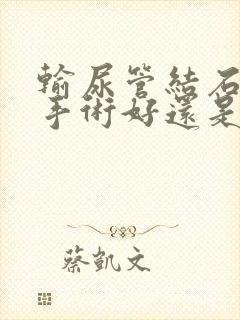 輸尿管結石
手術好還是
蔡凱文